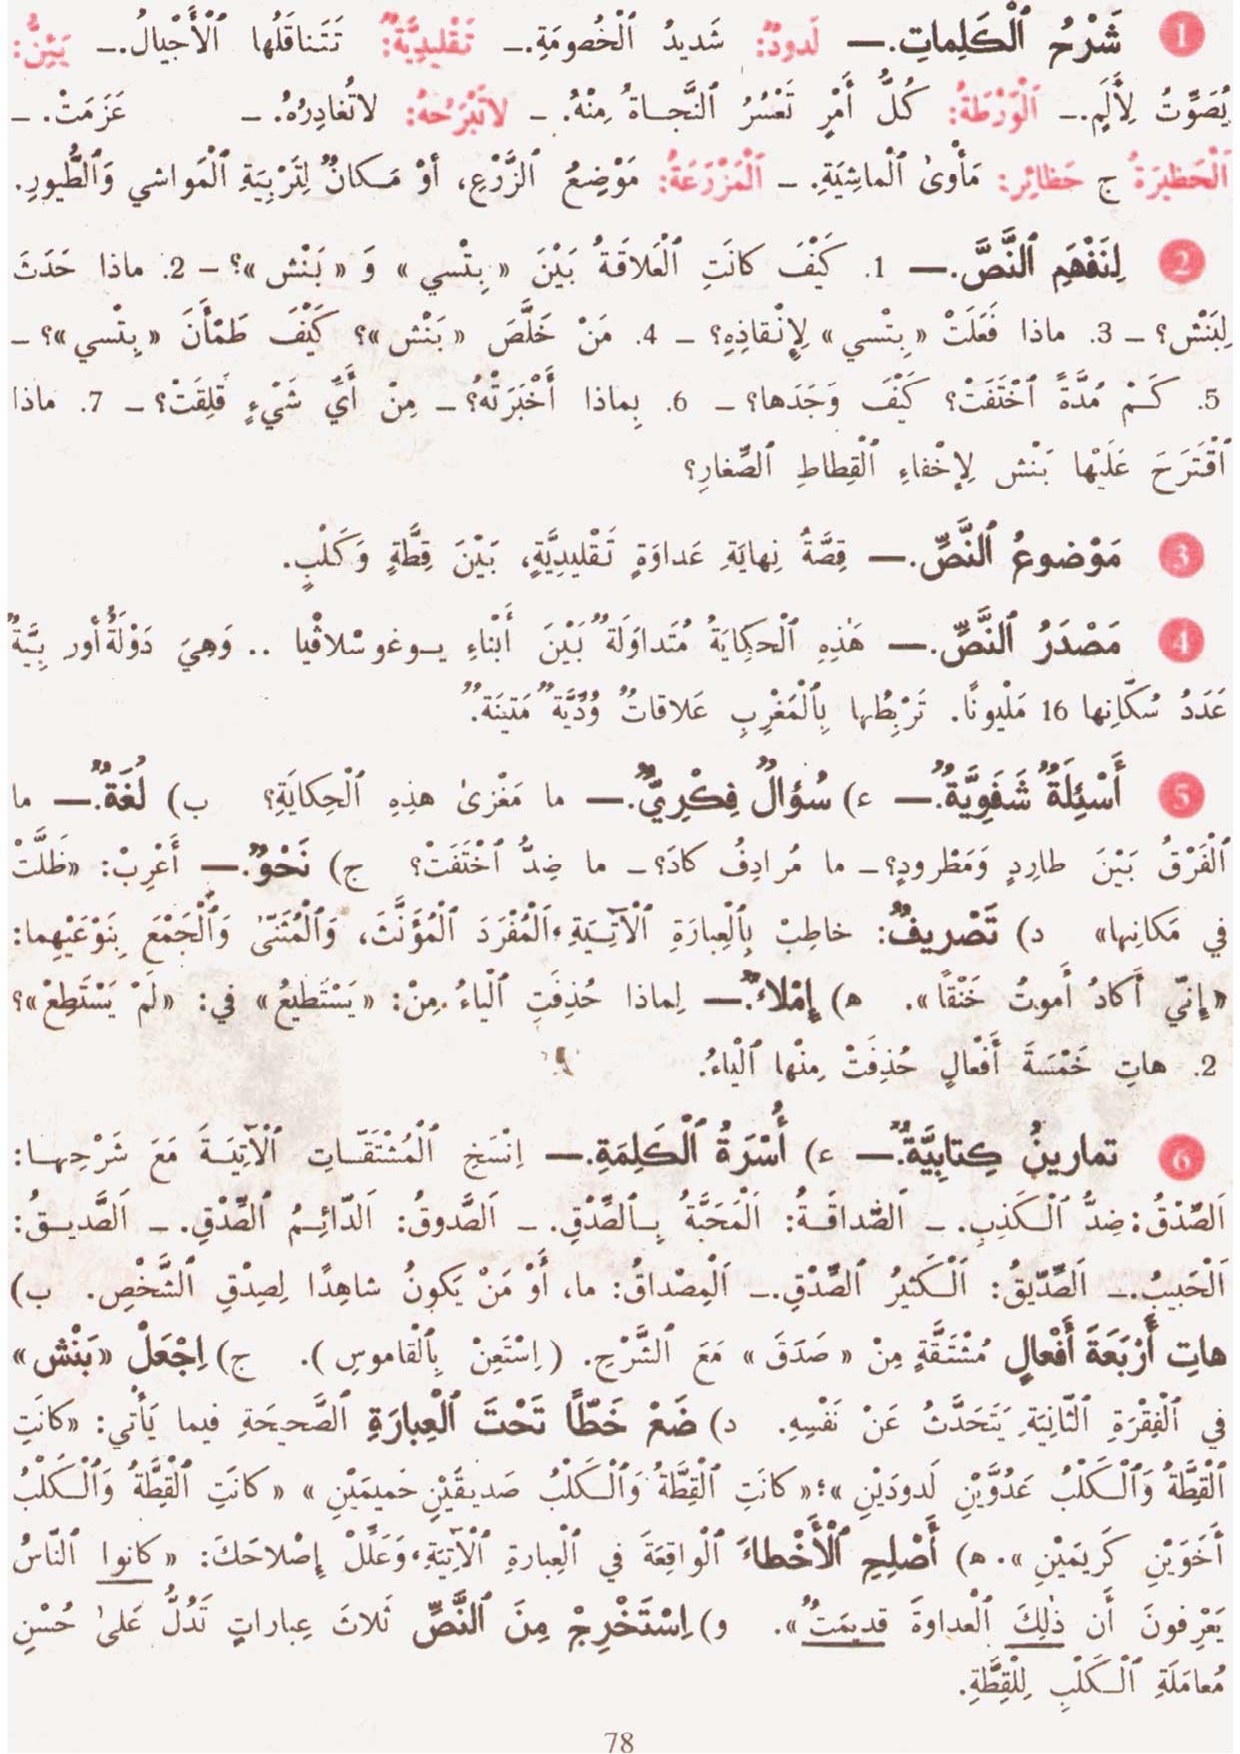 1 شَرْحُ ٱلْكَلِماتِ.— لَدودٌ: شَديدُ ٱلْخُصومَةِ.— تَقْليدِيَّةٌ: تَتَناقَلُها ٱلْأَجْيالُ.— يَئِنُّ:
يُصَوِّتُ لِأَلَمٍ.— ٱلْوَرْطَةُ: كُلُّ أَمْرٍ تَعْسُرُ ٱلنَّجـاةُ مِنْهُ. – لاتَبْرَحُهُ: لاتُغادِرُهُ. – عَزَمَتْ. –
ٱلْحَظيرَةُ ج حَظائِر: مَأْوىٰ ٱلْماشِيَةِ. – ٱلْمَزْرَعَةُ: مَوْضِعُ ٱلزَّرْعِ، أَوْ مَـكانٌ لِتَرْبِيَةِ ٱلْمَواشي وَٱلطُّيورِ.
2 لِنَفْهَمِ ٱلنَّصَّ.— 1. كَيْفَ كانَتِ ٱلْعَلاقَةُ بَيْنَ « بِتْسي » وَ « بَنْش »؟ – 2. ماذا حَدَثَ
لِبَنْش؟ – 3. ماذا فَعَلَتْ « بِتْسي » لِإِنْقاذِهِ؟ – 4. مَنْ خَلَّصَ « بَنْش »؟ كَيْفَ طَمْأَنَ « بِتْسي »؟ –
5. كَـمْ مُدَّةً ٱخْتَفَتْ؟ كَيْفَ وَجَدَها؟ – 6. بِماذا أَخْبَرَتْهُ؟ – مِنْ أَيِّ شَيْءٍ قَلِقَتْ؟ – 7. ماذا
ٱقْتَرَحَ عَلَيْها بَنْش لِإِخْفاءِ ٱلْقِطاطِ ٱلصِّغارِ؟
3 مَوْضوعُ ٱلنَّصِّ.— قِصَّةُ نِهايَةِ عَداوَةٍ تَقْليدِيَّةٍ، بَيْنَ قِطَّةٍ وَكَلْبٍ.
4 مَصْدَرُ ٱلنَّصِّ.— هَٰذِهِ ٱلْحِكايَةُ مُتَداوَلَةٌ بَيْنَ أَبْناءِ يـوغوسْلافْيا .. وَهِيَ دَوْلَةٌ أور بِيَّةٌ
عَدَدُ سُكّانِها 16 مَلْيونًا. تَرْبِطُها بِٱلْمَغْرِبِ عَلاقاتٌ وُدِّيَّةٌ مَتينَةٌ.
5 أَسْئِلَةٌ شَفَوِيَّةٌ.— ء) سُؤالٌ فِكْرِيٌّ.— ما مَغْزىٰ هذِهِ ٱلْحِكايَةِ؟ ب) لُغَةٌ.— ما
ٱلْفَرْقُ بَيْنَ طارِدٍ وَمَطْرودٍ؟ – ما مُرادِفُ كادَ؟ – ما ضِدُّ ٱخْتَفَتْ؟ ج) نَحْوٌ.— أَعْرِبْ: «ظَلَّتْ
في مَكانِها» د) تَصْريفٌ: خاطِبْ بِٱلْعِبارَةِ ٱلْآتِـيَةِ، ٱلْمُفْرَدَ ٱلْمُؤَنَّثَ، وَٱلْمُثَنّىٰ وَٱلْجَمْعَ بِنَوْعَيْهِما:
«إِنّي أَكادُ أَموتُ خَنْقاً». ه) إِمْلاءٌ.— لِماذا حُذِفَتِ ٱلْياءُ مِنْ: « يَسْتَطيعُ » في: «لَمْ يَسْتَطِعْ»؟
2. هاتِ خَمْسَةَ أَفْعالٍ حُذِفَتْ مِنْها ٱلْياءُ.
6 تمارينُ كِتابِيَّةٌ.— ء) أُسْرَةُ ٱلْكَلِمَةِ.— اِنْسَخِ ٱلْمُشْتَقّـاتِ ٱلْآتِيَـةَ مَعَ شَرْحِهـا:
اَلصِّدْقُ: ضِدُّ ٱلْـكَذِبِ. – اَلصَّداقَـةُ: اَلْمَحَبَّةُ بِـٱلصِّدْقِ. – اَلصَّدوقُ: اَلدّائِـمُ ٱلصِّدْقِ. – اَلصَّديـقُ:
اَلْحَبيبُ.– اَلصِّدّيقُ: اَلْـكَثيرُ ٱلصِّدْقِ.– اَلْمِصْداقُ: ما، أَوْ مَنْ يَكونُ شاهِدًا لِصِدْقِ ٱلشَّخْصِ. ب)
هاتِ أَرْبَعَةَ أَفْعالٍ مُشْتَقَّةٍ مِنْ « صَدَقَ » مَعَ ٱلشَّرْحِ. ( اِسْتَعِنْ بِٱلْقاموسِ ). ج) اِجْعَلْ « بَنْش »
في ٱلْفِقْرَةِ ٱلثّانِيَةِ يَتَحَدَّثُ عَنْ نَفْسِهِ. د) ضَعْ خَطًّا تَحْتَ ٱلْعِبارَةِ ٱلصَّحيحَةِ فيما يَأْتي: «كانَتِ
ٱلْقِطَّةُ وَٱلْـكَلْبُ عَدُوَّيْنِ لَدودَيْنِ »؛ « كانَتِ ٱلْقِطَّةُ وَٱلْـكَلْبُ صَديقَيْنِ حَميمَيْنِ » « كانَتِ ٱلْقِطَّةُ وَٱلْـكَلْبُ
أَخَوَيْنِ كَريمَيْنِ ». ه) أَصْلِحِ ٱلْأَخْطاءَ ٱلْواقِعَةَ في ٱلْعِبارةِ ٱلْآتِيَةِ، وَعَلِّلْ إِصْلاحَكَ: « كانوا ٱلنّاسُ
يَعْرِفونَ أَن ذٰلِكَ ٱلْعداوةَ قديمَتٌ ». و) اِسْتَخْرِجْ مِنَ ٱلنَّصِّ ثَلاثَ عِباراتٍ تَدُلُّ عَلىٰ حُسْنِ
مُعامَلَةِ ٱلْـكَلْبِ لِلْقِطَّةِ.
78